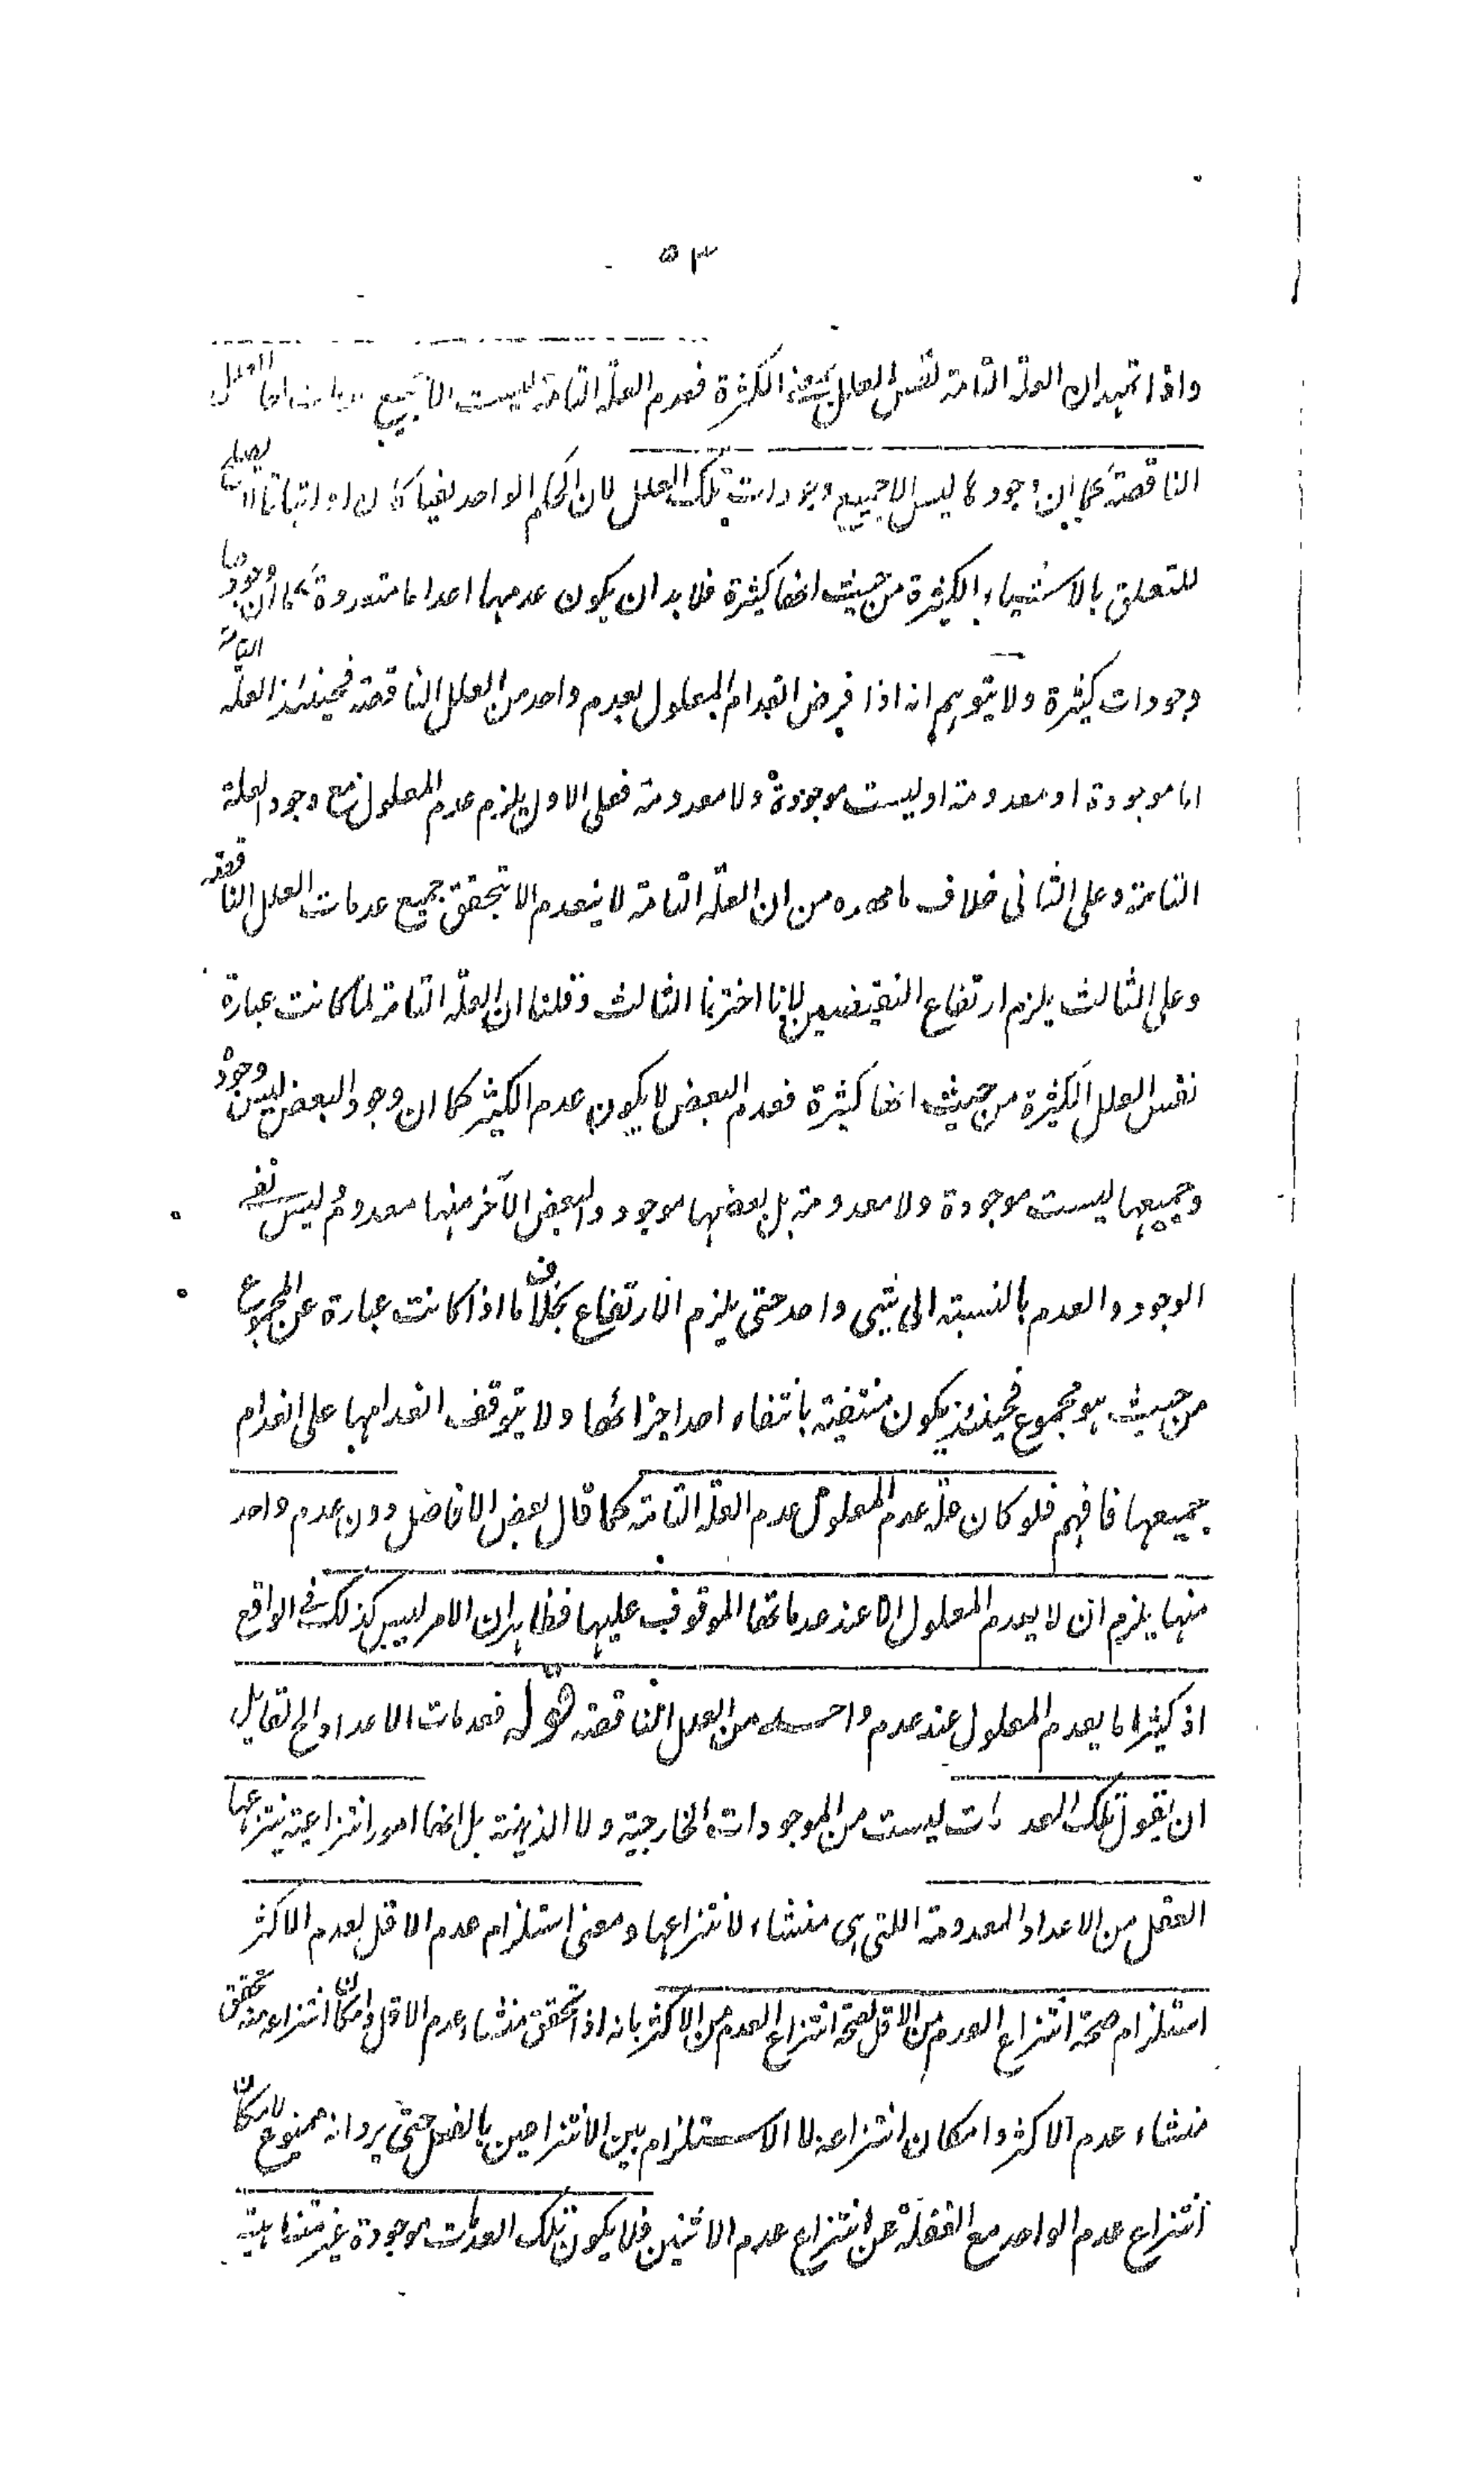 ٥٣
واذا تمهد ان العلة التامة نفس العلل بصفة الكثرة فعدم العلة التامة ليست الا جميع العلل
الناقصة كما ان وجودها ليس الا جميع وجودات تلك العلل لان الحكم الواحد نفيا كان او اثباتا لا يصلح
للتعلق بالاشياء الكثيرة من حيث انها كثيرة فلا بد ان يكون عدمها اعداما متعددة كما ان وجودها
وجودات كثيرة ولا يتوهم انه اذا فرض انعدام المعلول بعدم واحد من العلل الناقصة فحينئذ العلة التامة
اما موجودة او معدومة او ليست موجودة ولا معدومة فعلى الاول يلزم عدم المعلول مع وجود العلة
التامة وعلى الثاني خلاف ما من ان العلة التامة لا ينعدم الا بتحقق جميع عدمات العلل الناقصة
وعلى الثالث يلزم ارتفاع النقيضين لانا اخترنا الثالث وقلنا ان العلة التامة لما كانت عبارة
نفس العلل الكثيرة من حيث انها كثيرة فعدم البعض لا يكون عدم الكثير كما ان وجود البعض ليس وجود
وجميعها ليست موجودة ولا معدومة بل بعضها موجود والبعض الآخر منها معدوم ليس نفى
الوجود والعدم بالنسبة الى شيى واحد حتى يلزم الارتفاع بخلاف ما اذا كانت عبارة عن المجموع
من حيث هو مجموع فحينئذ يكون منتفية بانتفاء احد اجزائها ولا يتوقف انعدامها على انعدام
جميعها فافهم فلو كان علة عدم المعلول عدم العلة التامة كما قال بعض الافاضل دون عدم واحد
منها يلزم ان لا يعدم المعلول الا عند عدماتها الموقوف عليها فظاهر ان الامر ليس كذلك فى الواقع
اذ كثيرا ما يعدم المعلول عند عدم واحد من العلل الناقصة قوله فعدمات الاعداد الخ لقايل
ان يقول تلك العدمات ليست من الموجودات الخارجية ولا الذهنية بل انها امور انتزاعية ينتزعها
العقل من الاعداد المعدومة اللتى هى منشاء لانتزاعها ومعنى استلزام عدم الاقل لعدم الاكثر
استلزام صحة انتزاع العدم من الاقل لصحة انتزاع العدم من الاكثر بانه اذا تحقق منشاء عدم الاقل وامكان انتزاعه منه تحقق
منشاء عدم الاكثر وامكان انتزاعه لا الاستلزام بين الانتزاعين بالفعل حتى يرد انه ممنوع لامكان
انتزاع عدم الواحد مع الغفلة عن انتزاع عدم الاثنين فلا يكون تلك العدمات موجودة غير متناهية